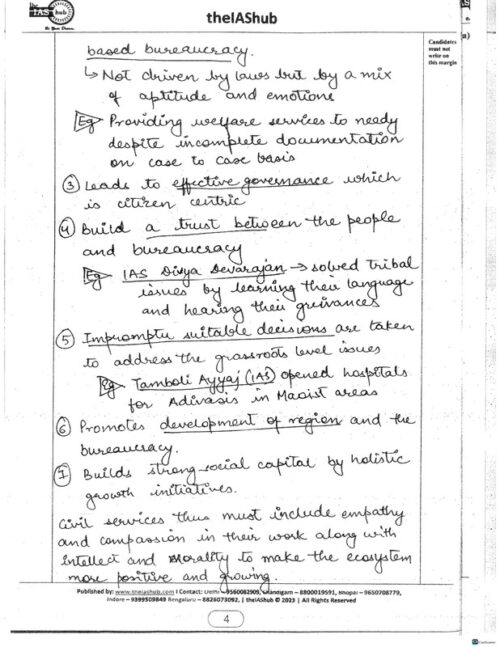 the IAS hub
Be Your Dream.
theIAShub
Candidates
must not
write on
this margin
a)
based bureaucracy.
↳ Not driven by laws but by a mix
of aptitude and emotions
Eg Providing welfare services to needy
despite incomplete documentation
on case to case basis
③ Leads to effective governance which
is citizen centric
④ Build a trust between the people
and bureaucracy
Eg IAS Divya Devarajan → solved Tribal
issues by learning their language
and hearing their grievances
⑤ Impromptu suitable decisions are taken
to address the grassroots level issues
eg Tamboli Ayyaj (IAS) opened hospitals
for Adivasis in Maoist areas
⑥ Promotes development of region and the
bureaucracy.
⑦ Builds strong social capital by holistic
growth initiatives.
Civil services thus must include empathy
and compassion in their work along with
intellect and morality to make the ecosystem
more positive and growing.
Published by: www.theiashub.com I Contact: Delhi – 9560082909, Chandigarh – 8800019591, Bhopal – 9650708779,
Indore – 9399509849 Bengaluru – 8826073092, | theIAShub © 2023 | All Rights Reserved
4